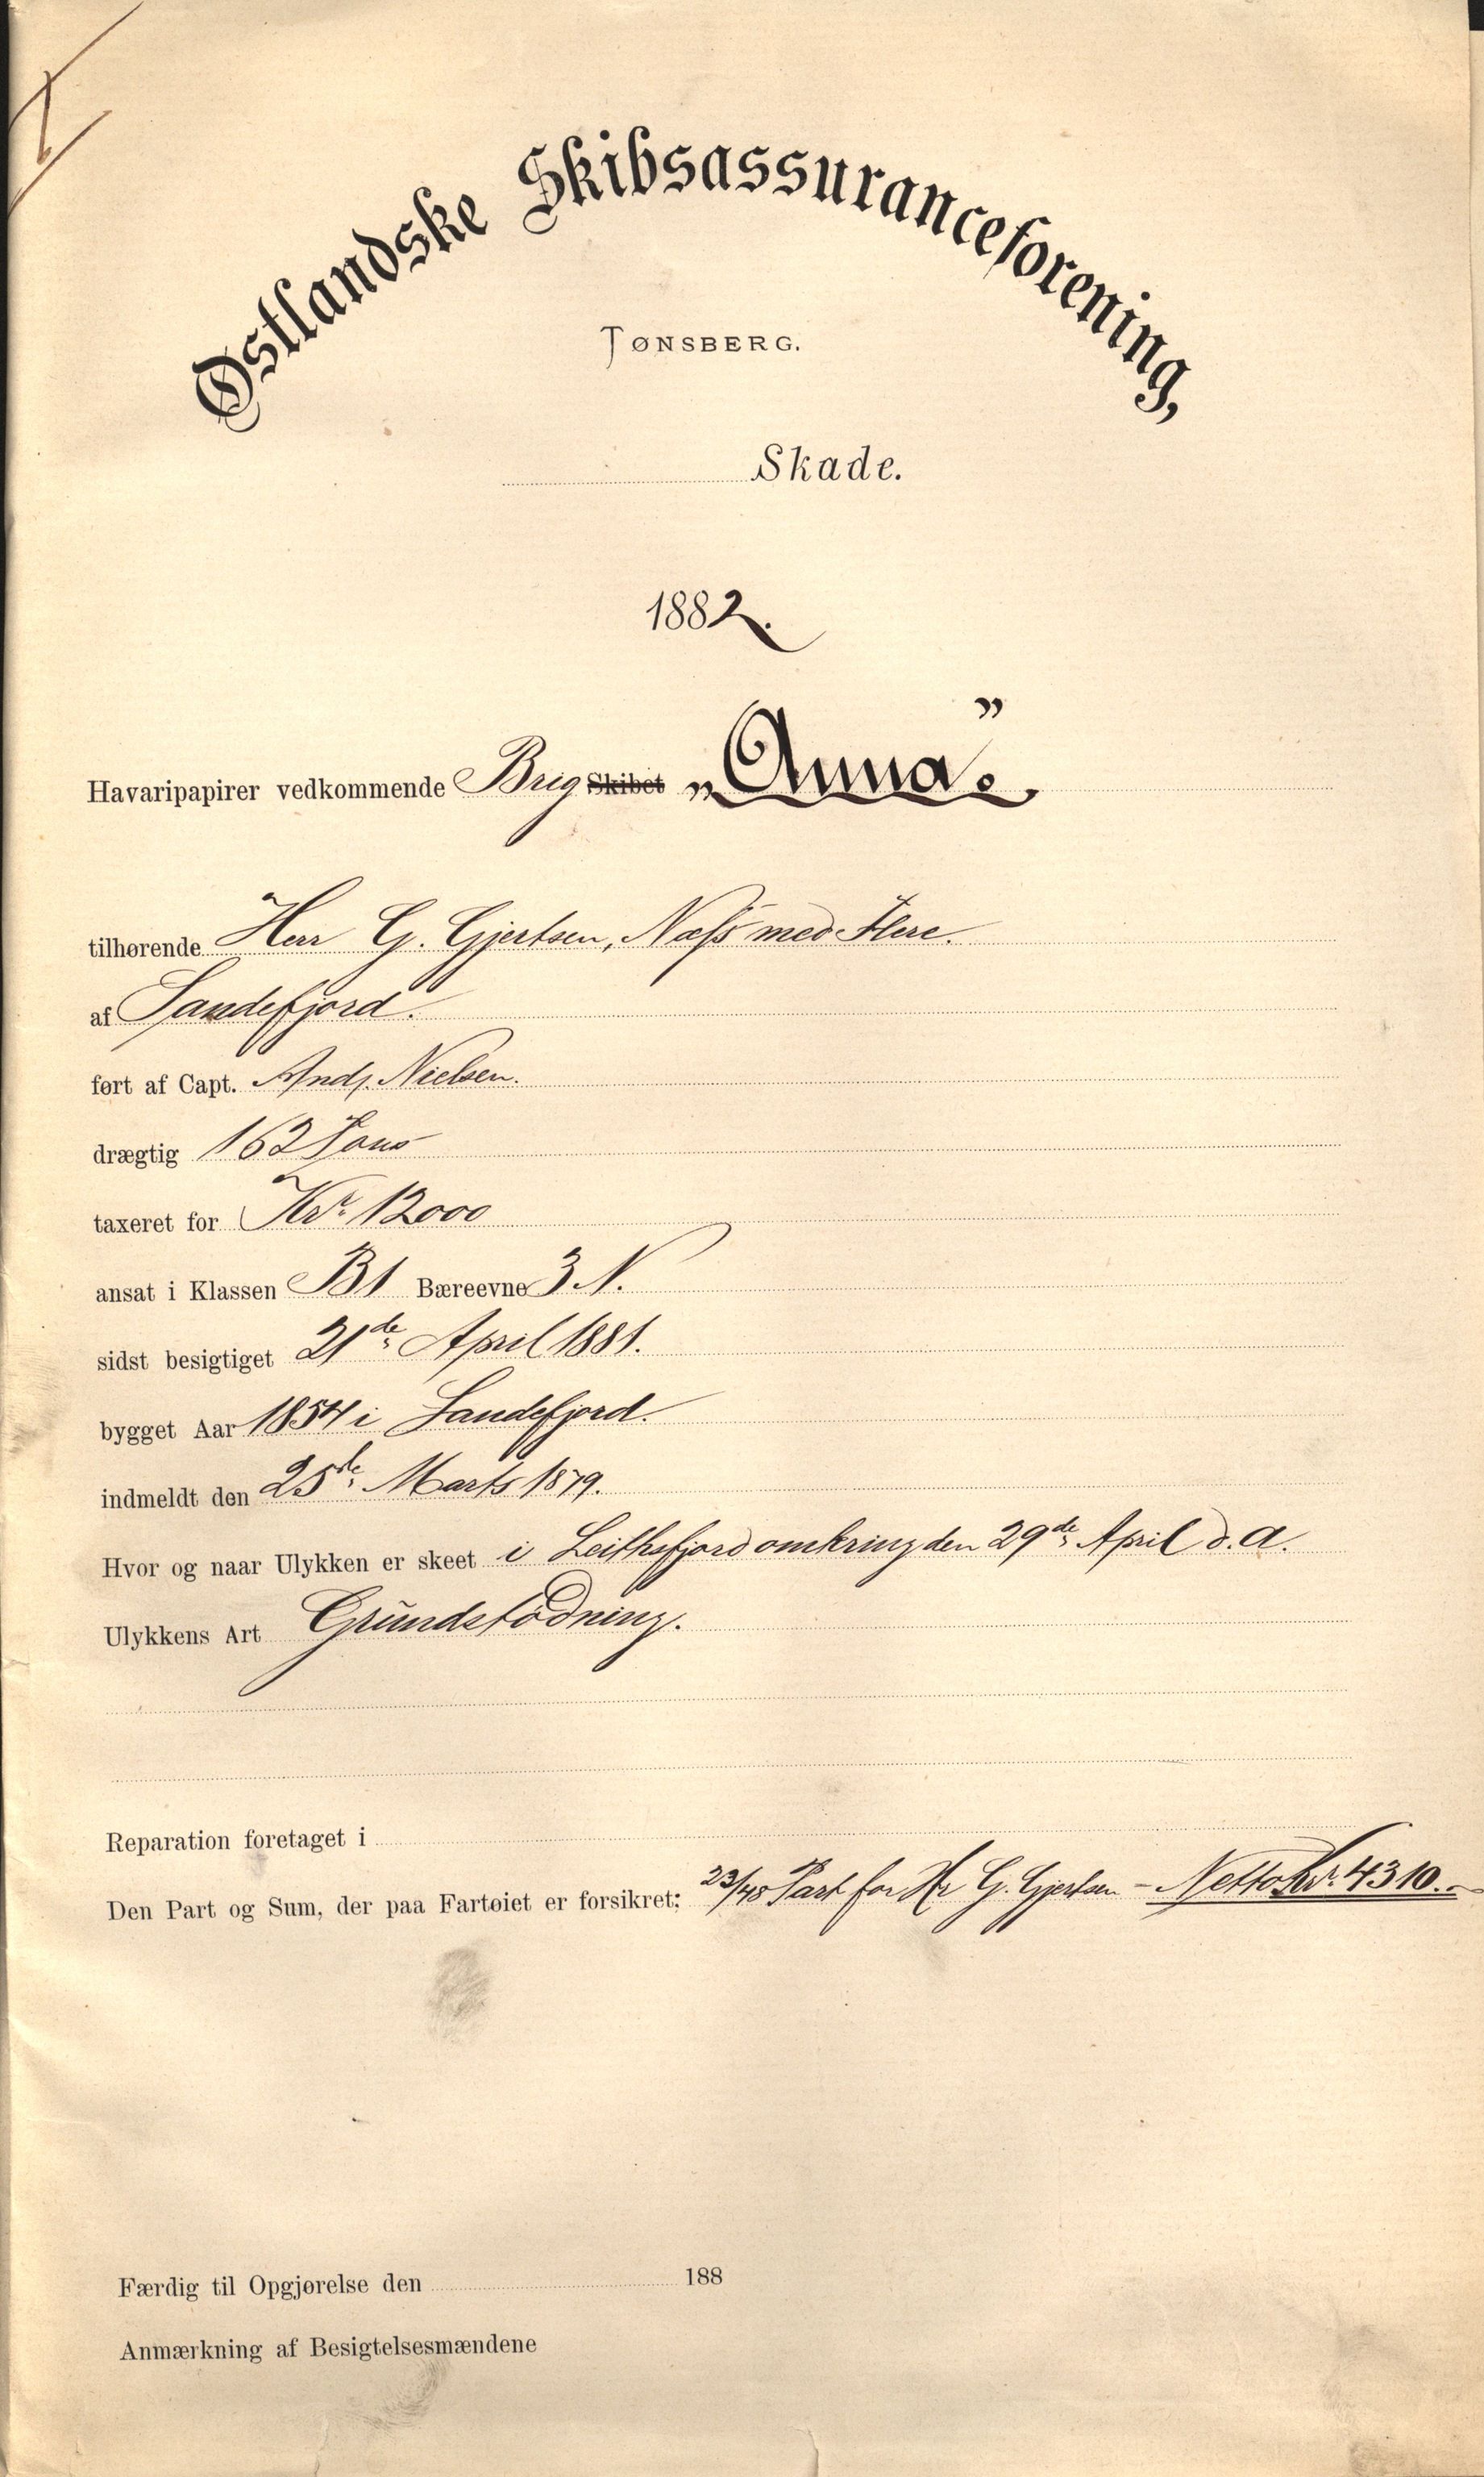 Østlandske Skibsassuranceforening,
TØNSBERG.
Skade.
1882.
Havaripapirer vedkommende Brig Skibet „Anna"
tilhørende Herr G. Gjertsen, Næss med Flere.
af Sandefjord.
ført af Capt. Andr. Nielsen.
drægtig 162 Tons
taxeret for Kr. 12000
ansat i Klassen B1 Bæreevne 3 N.
sidst besigtiget 21de April 1881.
bygget Aar 1854 i Sandefjord.
indmeldt den 25de Marts 1879.
Hvor og naar Ulykken er skeet i Leithsfjord omkring den 29de April d. A.
Ulykkens Art Grundstødning.
Reparation foretaget i
Den Part og Sum, der paa Fartøiet er forsikret: 23/48 Part for Hr G. Gjertsen - Netto Kr. 4310.-
Færdig til Opgjørelse den 188
Anmærkning af Besigtelsesmændene